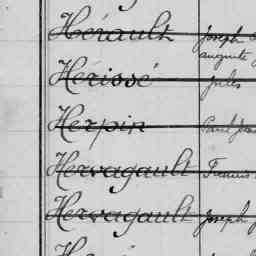 Hérault Joseph
auguste
Hérissé Jules
Herpin Paul
Hervagault Francis
Hervagault Joseph